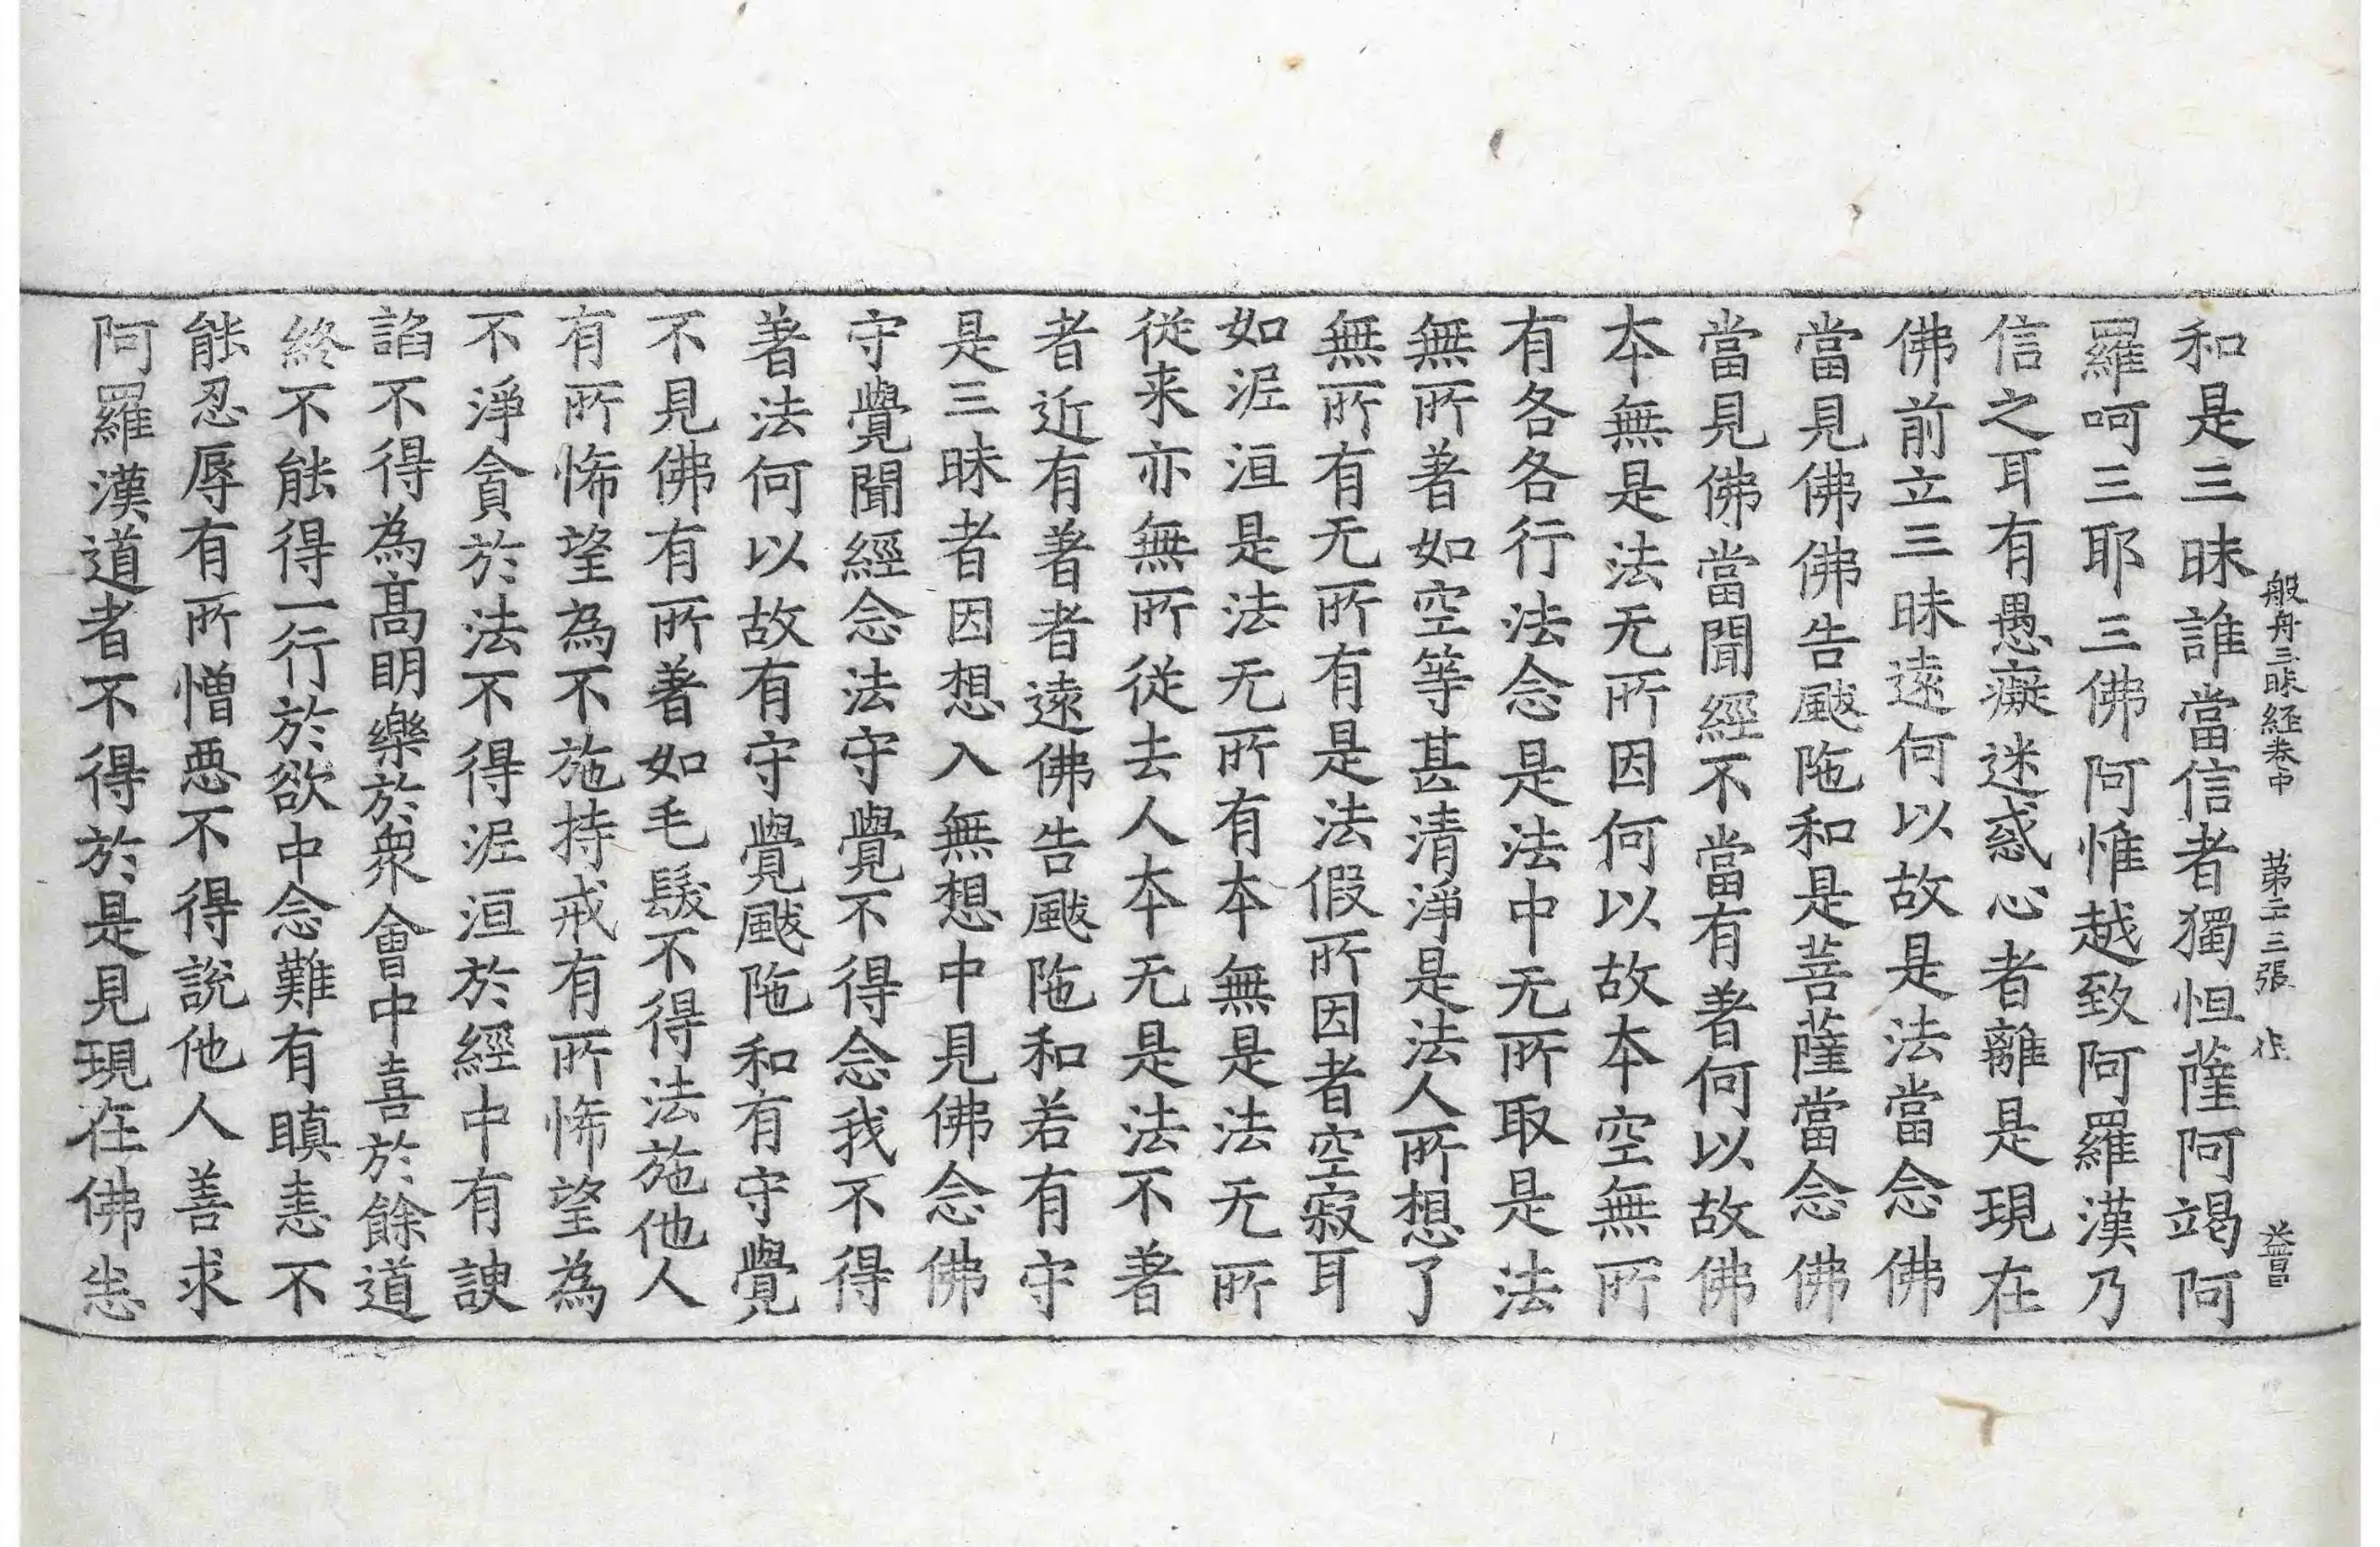 般舟三昧経卷中 第二十三張
和是三昧誰當信者獨怛薩阿竭阿
羅呵三耶三佛阿惟越致阿羅漢乃
信之耳有愚癡迷惑心者離是現在
佛前立三昧遠何以故是法當念佛
當見佛佛告颰陁和是菩薩當念佛
當見佛當聞經不當有著何以故佛
本無是法无所因何以故本空無所
有各各行法念是法中无所取是法
無所著如空等甚清淨是法人所想了
無所有无所有是法假所因者空寂耳
如泥洹是法无所有本無是法无所
從来亦無所從去人本无是法不著
者近有著者遠佛告颰陁和若有守
是三昧者因想入無想中見佛念佛
守覺聞經念法守覺不得念我不得
著法何以故有守覺颰陁和有守覺
不見佛有所著如毛髮不得法施他人
有所悕望為不施持戒有所悕望為
不淨貪於法不得泥洹於經中有諛
諂不得為高明樂於衆會中喜於餘道
終不能得一行於欲中念難有瞋恚不
能忍辱有所憎惡不得説他人善求
阿羅漢道者不得於是見現在佛悉